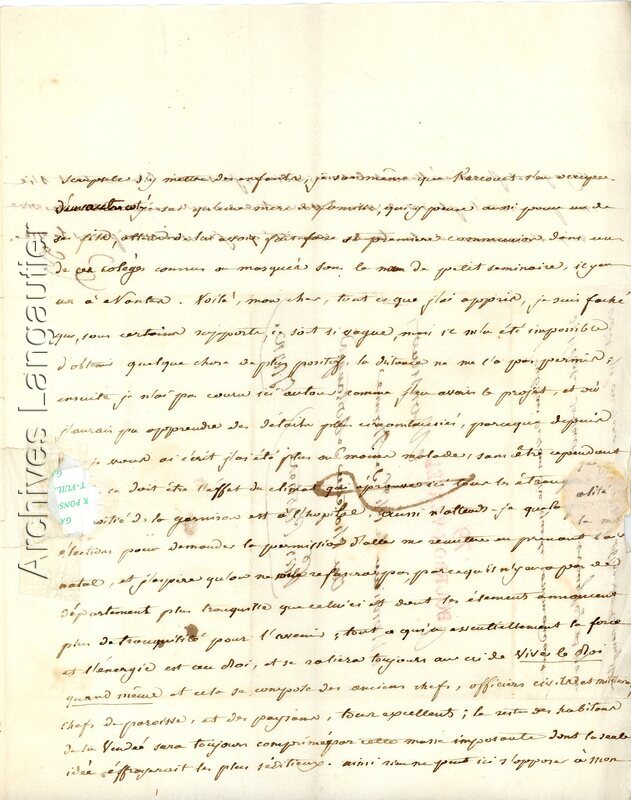 scrupule d'y mettre des enfants, je sais même que Karcouet s'en occupe
sais qu'une mère de famille, qui y pense aussi pour un de
ses fils, attend de lui avoir fait faire sa première communion dans un
de ces coléges connus ou masqués sous le nom de petit seminaire, il y en
a à Nantes. Voilà, mon cher, tout ce que j'ai appris, je suis faché
que, sous certains rapports, ce soit si vague, mais il m'a été impossible
d'obtenir quelque chose de plus positif, la distance ne me l'a pas permis;
ensuite je n'ai pas couru ici autour comme j'en avais le projet, et où
j'aurais pu apprendre des détails plus circonstanciés, parceque depuis
que je vous ai écrit j'ai été plus ou moins malade, sans être cependant
ce doit être l'effet du climat qui éprouve ici tous les étrangers
moitié de la garnison est à l'hopital, aussi n'attends-je que les
élections pour demander la permission d'aller me remettre en prenant l'air
natal, et j'espère qu'on ne me le refusera pas, parcequ'il n'y en a pas de
département plus tranquille que celui ci et dont les élements annoncent
plus de tranquilité pour l'avenir; tout ce qu'a essentiellement la force
et l'énergie est au Roi, et se raliera toujours au cri de Vive le Roi
quand même et cela se compose des anciens chefs, officiers civils et militaires,
chefs de paroisse, et des paysans, tous excellents; le reste des habitans
de la Vendée sera toujours comprimé par cette masse imposante dont la seule
idée éffrayerait les plus séditieux. ainsi rien ne peut ici s'opposer à mon
Archives Langautier